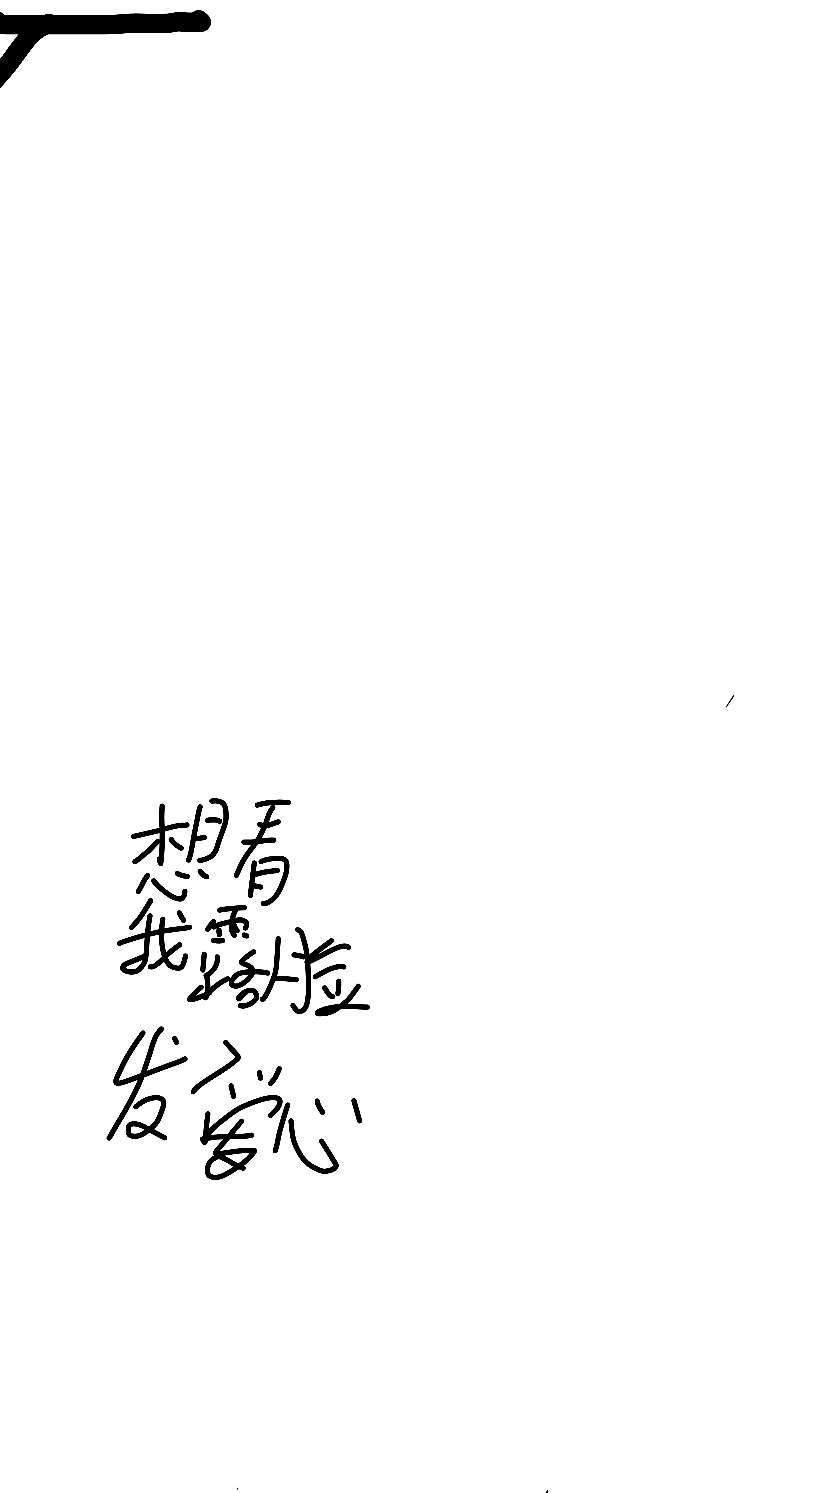 想看
我露脸
发爱心